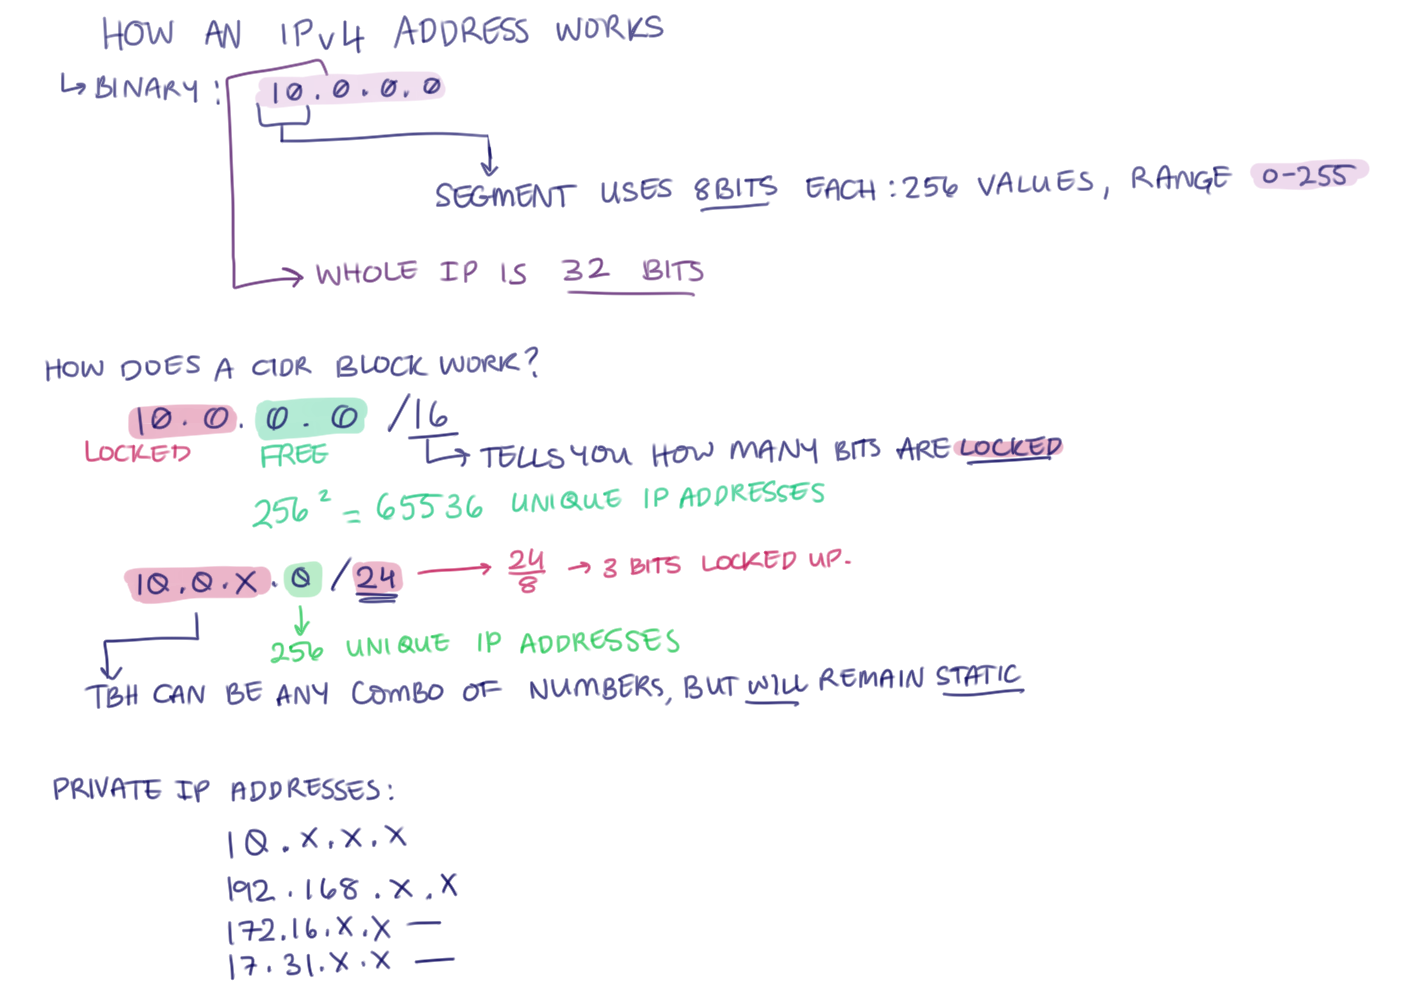 HOW AN IPv4 ADDRESS WORKS
↳ BINARY: 10.0.0.0
SEGMENT USES 8BITS EACH: 256 VALUES, RANGE 0-255
WHOLE IP IS 32 BITS
HOW DOES A CIDR BLOCK WORK?
10.0.0.0 /16
LOCKED FREE ↳ TELLS YOU HOW MANY BITS ARE LOCKED
256² = 65536 UNIQUE IP ADDRESSES
10.0.X.0 /24 → 24/8 → 3 BITS LOCKED UP.
256 UNIQUE IP ADDRESSES
TBH CAN BE ANY COMBO OF NUMBERS, BUT WILL REMAIN STATIC
PRIVATE IP ADDRESSES:
10.X.X.X
192.168.X.X
172.16.X.X —
17.31.X.X —